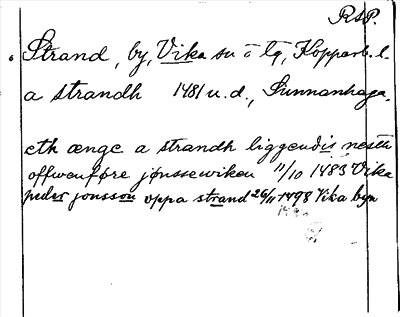 RSP.
Strand, by, Vika sn o tg, Kopparb. l.
a strandh 1481 u.d., Sunnanhaga.
eth ænge a strandh liggendis nesth
offwenføre jønssewiken 11/10 1483 Vika
peder jonsson oppa strand 26/11 1498 Vika byn